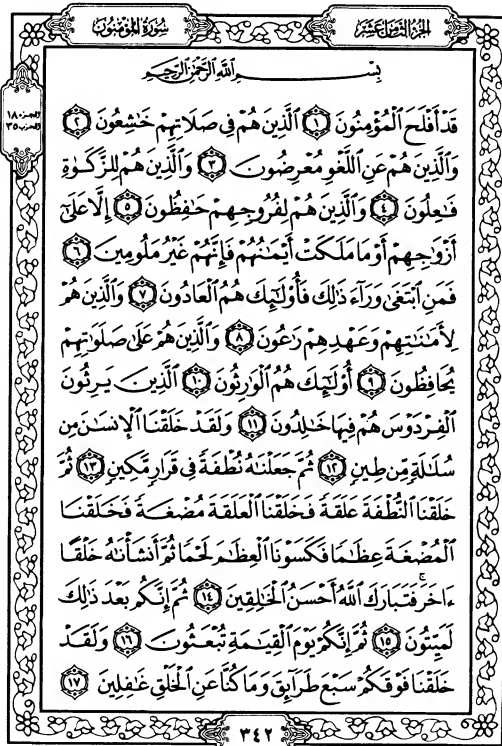 سُورَةُ المُؤْمِنُونَ
الجُزْءُ الثَّامِنُ عَشَرَ
الجزء ١٨
الحزب ٣٥
بِسْمِ ٱللَّهِ ٱلرَّحْمَٰنِ ٱلرَّحِيمِ
قَدْ أَفْلَحَ ٱلْمُؤْمِنُونَ ١ ٱلَّذِينَ هُمْ فِى صَلَاتِهِمْ خَٰشِعُونَ ٢
وَٱلَّذِينَ هُمْ عَنِ ٱللَّغْوِ مُعْرِضُونَ ٣ وَٱلَّذِينَ هُمْ لِلزَّكَوٰةِ
فَٰعِلُونَ ٤ وَٱلَّذِينَ هُمْ لِفُرُوجِهِمْ حَٰفِظُونَ ٥ إِلَّا عَلَىٰٓ
أَزْوَٰجِهِمْ أَوْ مَا مَلَكَتْ أَيْمَٰنُهُمْ فَإِنَّهُمْ غَيْرُ مَلُومِينَ ٦
فَمَنِ ٱبْتَغَىٰ وَرَآءَ ذَٰلِكَ فَأُو۟لَٰٓئِكَ هُمُ ٱلْعَادُونَ ٧ وَٱلَّذِينَ هُمْ
لِأَمَٰنَٰتِهِمْ وَعَهْدِهِمْ رَٰعُونَ ٨ وَٱلَّذِينَ هُمْ عَلَىٰ صَلَوَٰتِهِمْ
يُحَافِظُونَ ٩ أُو۟لَٰٓئِكَ هُمُ ٱلْوَٰرِثُونَ ١٠ ٱلَّذِينَ يَرِثُونَ
ٱلْفِرْدَوْسَ هُمْ فِيهَا خَٰلِدُونَ ١١ وَلَقَدْ خَلَقْنَا ٱلْإِنسَٰنَ مِن
سُلَٰلَةٍ مِّن طِينٍ ١٢ ثُمَّ جَعَلْنَٰهُ نُطْفَةً فِى قَرَارٍ مَّكِينٍ ١٣ ثُمَّ
خَلَقْنَا ٱلنُّطْفَةَ عَلَقَةً فَخَلَقْنَا ٱلْعَلَقَةَ مُضْغَةً فَخَلَقْنَا
ٱلْمُضْغَةَ عِظَٰمًا فَكَسَوْنَا ٱلْعِظَٰمَ لَحْمًا ثُمَّ أَنشَأْنَٰهُ خَلْقًا
ءَاخَرَ ۚ فَتَبَارَكَ ٱللَّهُ أَحْسَنُ ٱلْخَٰلِقِينَ ١٤ ثُمَّ إِنَّكُم بَعْدَ ذَٰلِكَ
لَمَيِّتُونَ ١٥ ثُمَّ إِنَّكُمْ يَوْمَ ٱلْقِيَٰمَةِ تُبْعَثُونَ ١٦ وَلَقَدْ
خَلَقْنَا فَوْقَكُمْ سَبْعَ طَرَآئِقَ وَمَا كُنَّا عَنِ ٱلْخَلْقِ غَٰفِلِينَ ١٧
٣٤٢